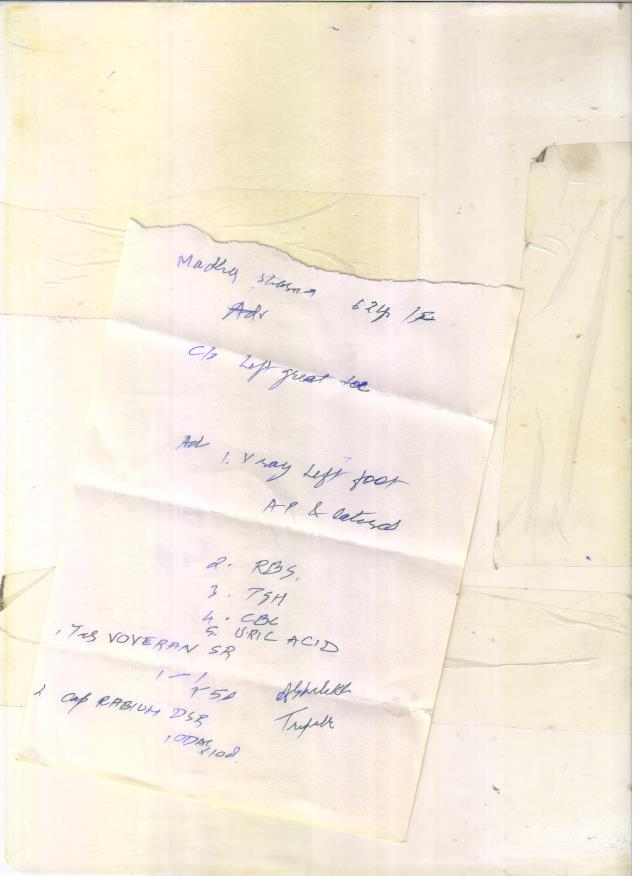 Madhu Sharma 62y /F
Adv
C/o Left great toe
Ad 1. X ray Left foot
AP & lateral
2. RBS,
3. TSH
4. CBC
5. URIC ACID
1 Tab VOVERAN SR
1 - 1
x 5D
2 Cap RABIUM DSR
1 OD AC
x 10d.